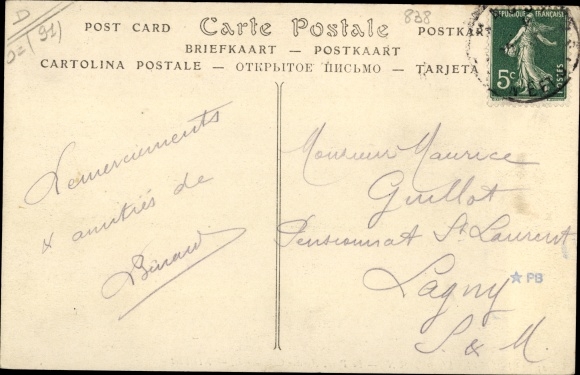 D
D=(91)
838
POST CARD
Carte Postale
POSTKAR
BRIEFKAART — POSTKAART
CARTOLINA POSTALE — ОТКРЫТОЕ ПИСЬМО — TARJETA
REPUBLIQUE FRANÇAISE
5c
POSTES
Remerciements
& amitiés de
Monsieur Maurice
Guillot
Pensionnat St Laurent
Lagny
S & M.
PB